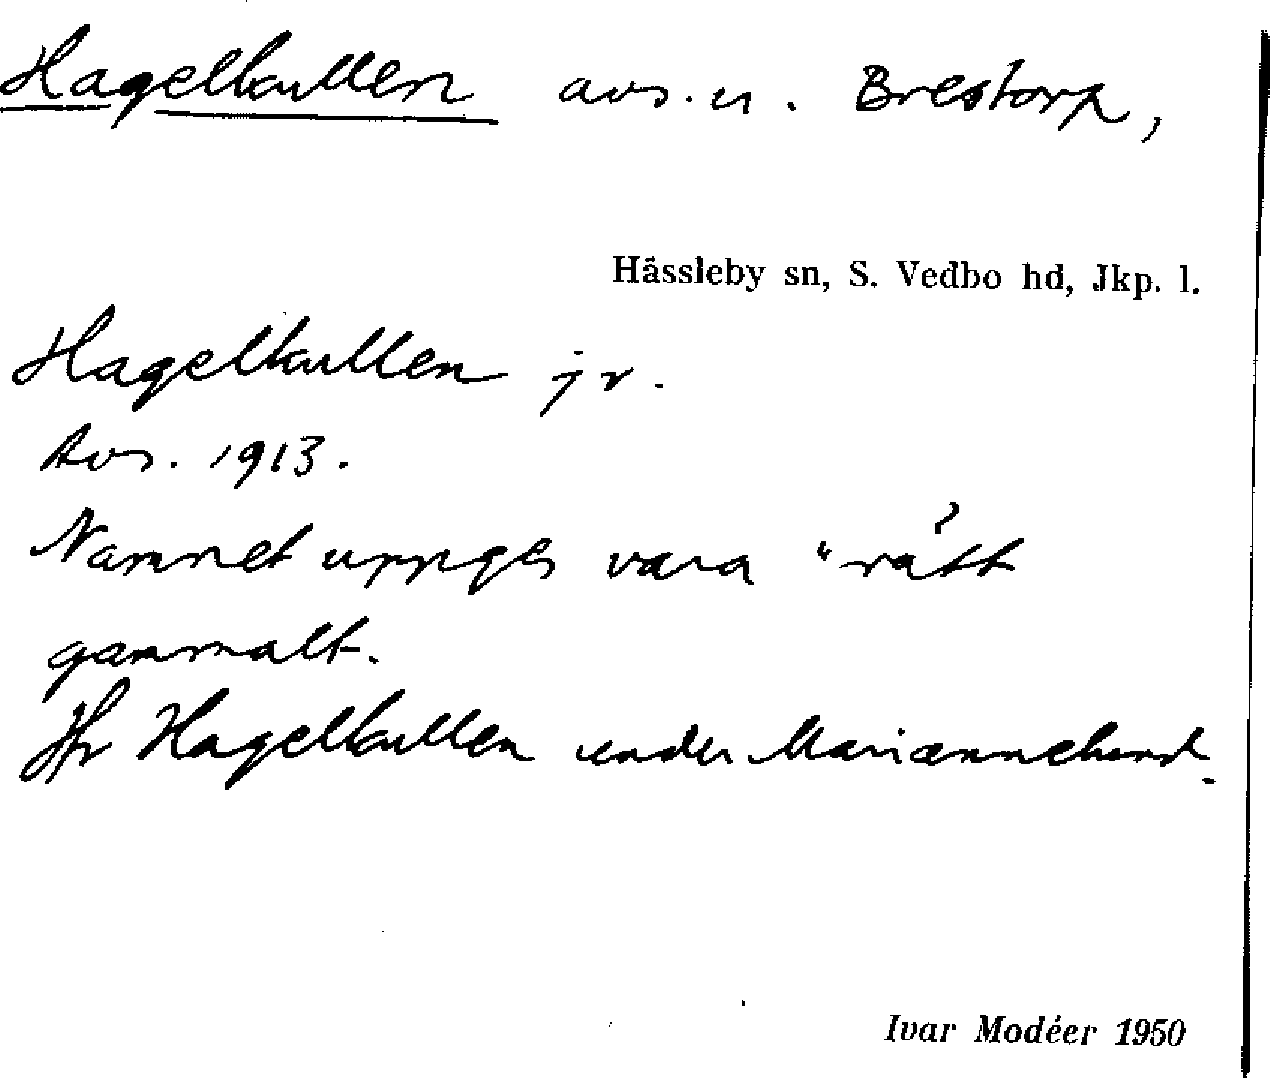 Hagelkullen avs. u. Brestorp,
Hässleby sn, S. Vedbo hd, Jkp. l.
Hagelkullen jr.
Avs. 1913.
Namnet uppges vara "rätt
gammalt.
Jfr Hagelkullen under Mariannelund.
Ivar Modéer 1950